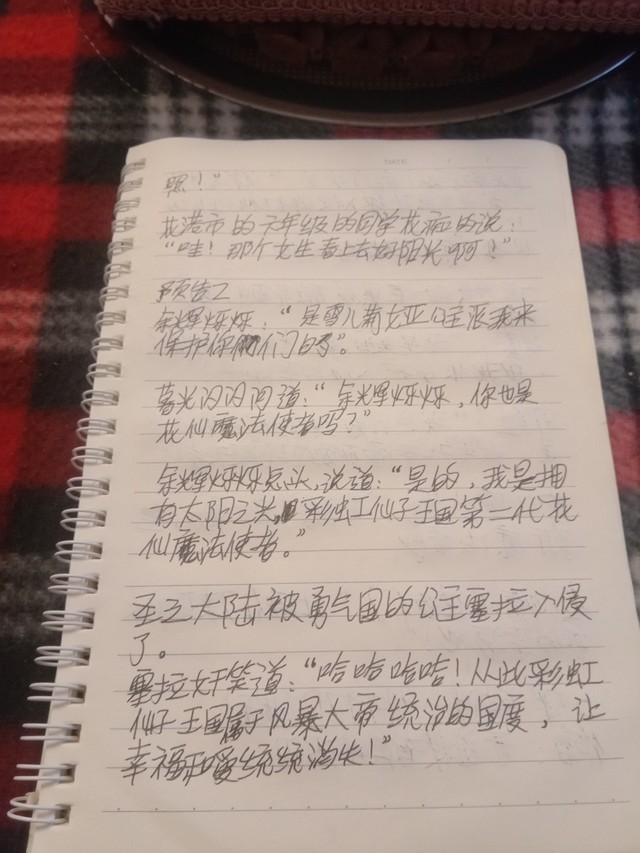 嘿！”
花港市的六年级的同学花痴的说：
“哇！那个女生看上去好阳光啊！”
预告2
余辉烁烁：“是雪儿菊娅公主派我来
保护你们的”。
暮光闪闪问道：“余辉烁烁，你也是
花仙魔法使者吗？”
余辉烁烁点头，说道：“是的，我是拥
有太阳之光，彩虹仙子王国第二代花
仙魔法使者。”
圣之大陆被勇气国的公主塞拉入侵
了。
塞拉奸笑道：“哈哈哈哈！从此彩虹
仙子王国属于风暴大帝统治的国度，让
幸福和爱统统消失！”